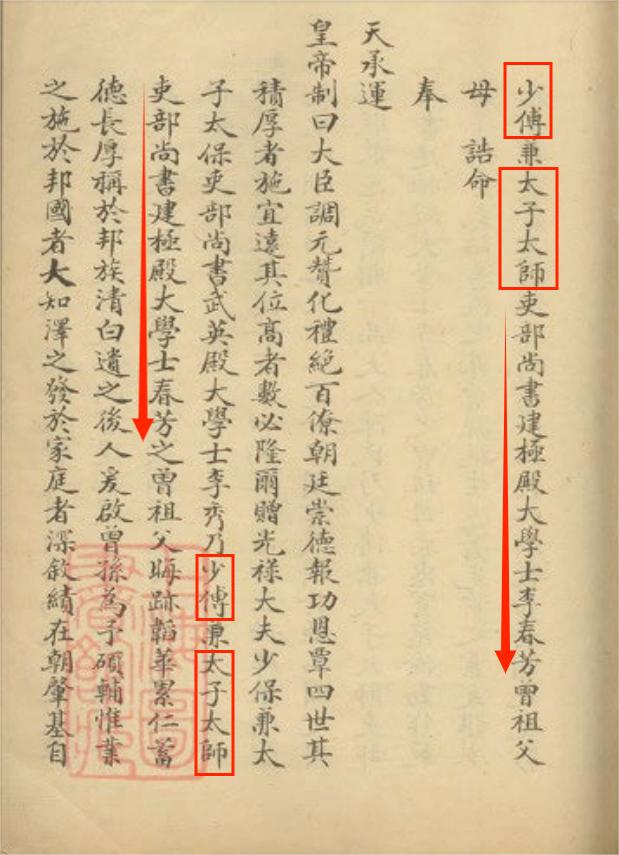 少傅兼太子太師吏部尚書建極殿大學士李春芳曾祖父
母 誥命
奉
天承運
皇帝制曰大臣調元贊化禮絕百僚朝廷崇德報功恩覃四世其
積厚者施宜遠其位高者數必隆爾贈光祿大夫少保兼太
子太保吏部尚書武英殿大學士李秀乃少傅兼太子太師
吏部尚書建極殿大學士春芳之曾祖父晦跡韜華累仁蓄
德長厚稱於邦族清白遺之後人爰啟曾孫為予碩輔惟業
之施於邦國者大知澤之發於家庭者深敘績在朝肇基自